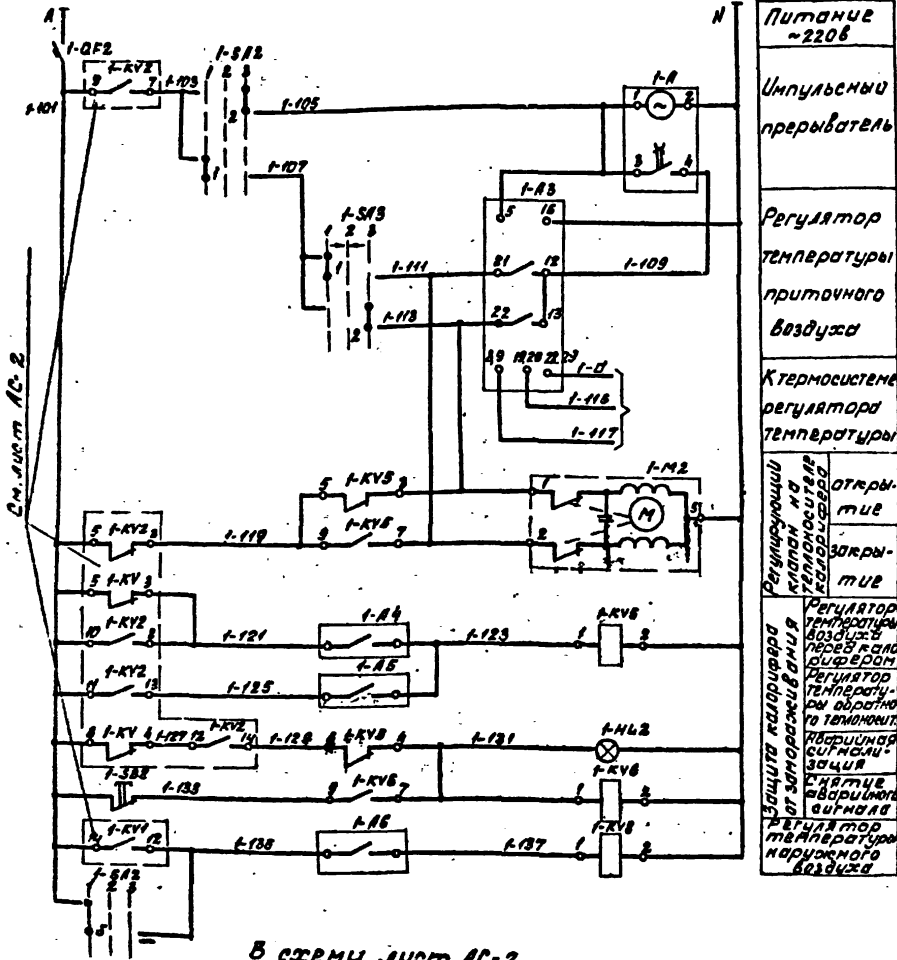 A
N
1-QF2
1-KV2
9
7
1-103
1-SA2
1 2 3
1-101
1-105
2
1
1-A
1
2
3
4
1-107
1-SA3
1 2 3
1
2
1-A3
5
16
1-111
21
12
1-109
1-113
22
13
1-116
1-117
См. лист АС-2
1-KV5
5
3
1-KV5
9
7
1-M2
1
2
M
5
5
1-KV2
3
1-119
5
1-KV
3
10
1-KV2
2
1-121
1-A4
1-123
1
1-KV6
2
11
1-KV2
13
1-125
1-A5
1-KV
4
1-127
12
1-KV2
14
1-KV8
4
1-131
1-HL2
1-SB2
9
1-KV6
7
1
1-KV6
2
1-KV1
12
1-A6
1-137
1
1-KV8
2
1-SA2
1 2 3
В схемы лист АС-2
Питание
~220в
Импульсный
прерыватель
Регулятор
температуры
приточного
воздуха
К термосистеме
регулятора
температуры
Регулирующий
клапан на
теплоносителе
калорифера
откры-
тие
закры-
тие
Защита калорифера
от замораживания
Регулятор
температуры
воздуха
перед кало
рифером
Регулятор
температу-
ры обратно
го теплоносит.
Аварийная
сигнали-
зация
Снятие
аварийного
сигнала
Регулятор
температуры
наружного
воздуха